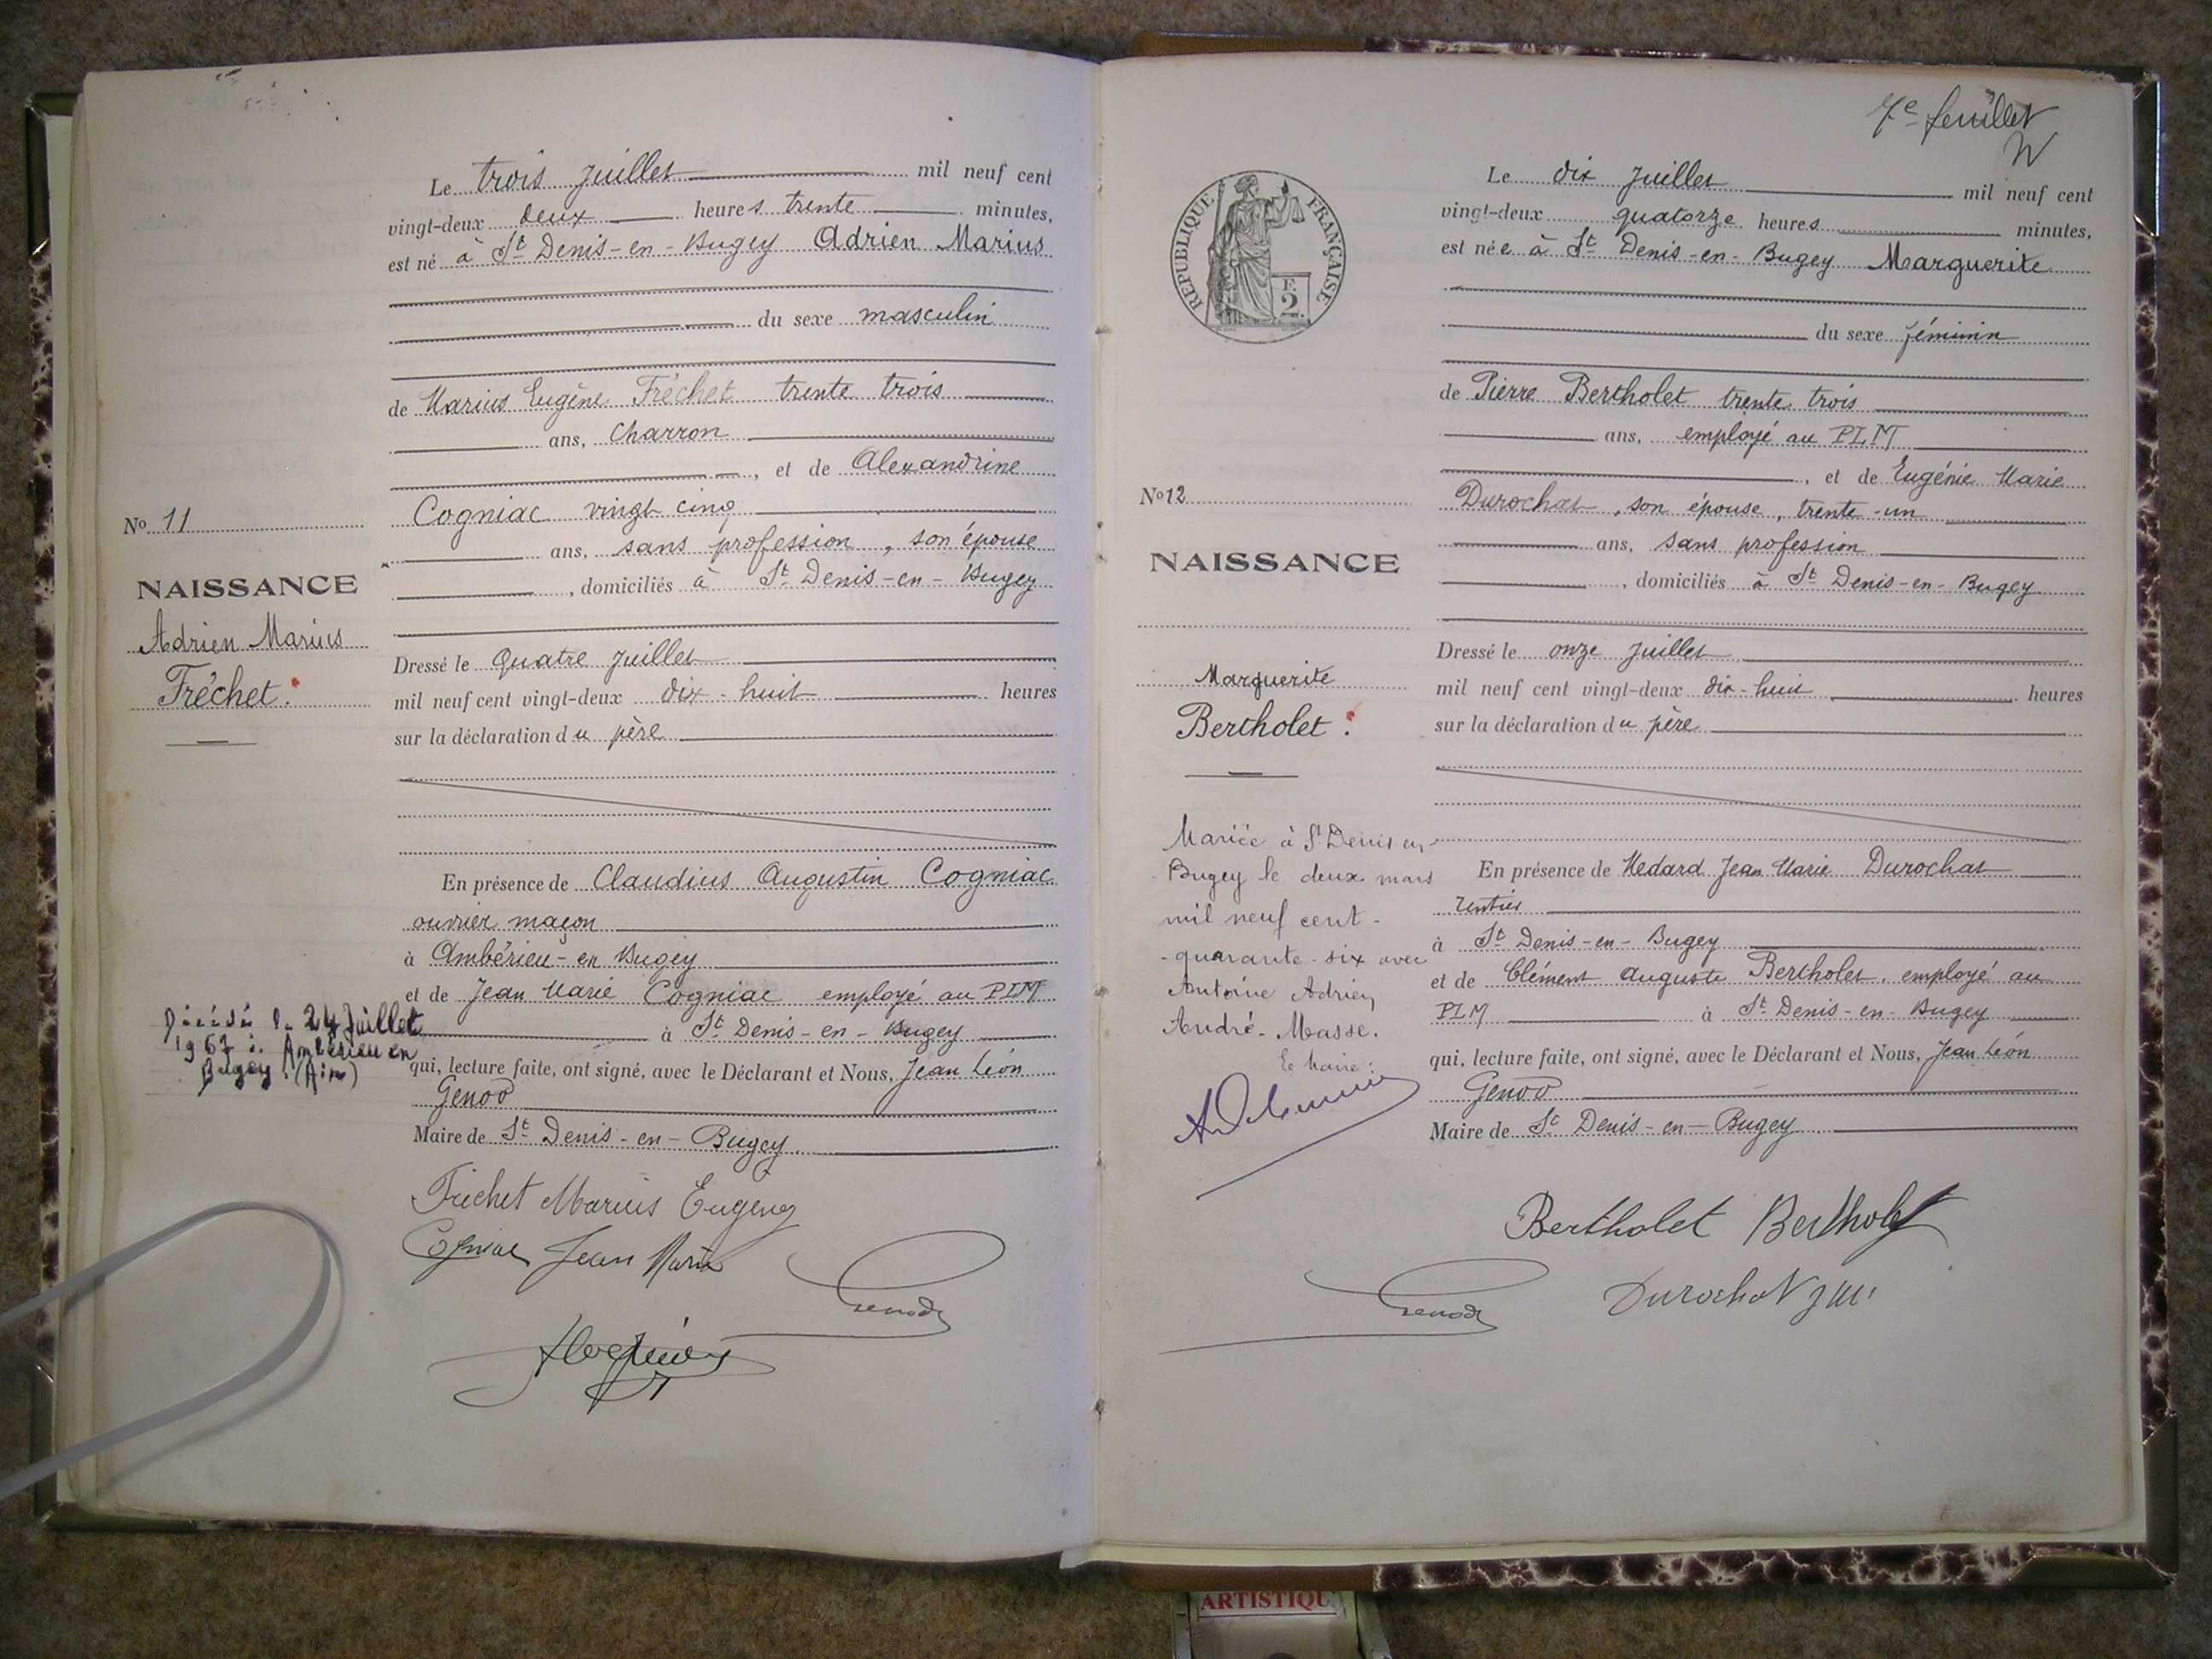 Le trois Juillet mil neuf cent
vingt-deux deux heures trente minutes,
est né à St Denis-en-Bugey Adrien Marius
du sexe masculin
de Marius Eugène Fréchet trente trois
ans, Charron
, et de Alexandrine
Cogniac vingt cinq
ans, sans profession, son épouse
, domiciliés à St Denis-en-Bugey
No 11
NAISSANCE
Adrien Marius
Fréchet
Dressé le quatre Juillet
mil neuf cent vingt-deux dix-huit heures
sur la déclaration du père
En présence de Claudius Augustin Cogniac
ouvrier maçon
à Ambérieu-en Bugey
et de Jean Marie Cogniac employé au PLM
à St Denis-en-Bugey
qui, lecture faite, ont signé, avec le Déclarant et Nous, Jean Léon
Genod
Maire de St Denis-en-Bugey
24 Juillet
1967 à Ambérieu en
Bugey (Ain)
Fréchet Marius Eugène
Cogniac Jean Marie
Genod
7e feuillet
REPUBLIQUE FRANÇAISE
F.
2.
Le dix Juillet mil neuf cent
vingt-deux quatorze heures minutes,
est née à St Denis-en-Bugey Marguerite
du sexe féminin
de Pierre Bertholet trente trois
ans, employé au PLM
, et de Eugénie Marie
Durochat, son épouse, trente-un
ans, sans profession
, domiciliés à St Denis-en-Bugey
No 12
NAISSANCE
Marguerite
Bertholet
Dressé le onze Juillet
mil neuf cent vingt-deux dix-huit heures
sur la déclaration du père
En présence de Medard Jean Marie Durochat
rentier
à St Denis-en-Bugey
et de Clément Auguste Bertholet, employé au
PLM à St Denis-en-Bugey
qui, lecture faite, ont signé, avec le Déclarant et Nous, Jean Léon
Genod
Maire de St Denis-en-Bugey
Mariée à St Denis en
Bugey le deux mars
mil neuf cent-
-quarante-six avec
Antoine Adrien
André-Masse.
le Maire:
Bertholet Bertholet
Genod Durochat
ARTISTIQU